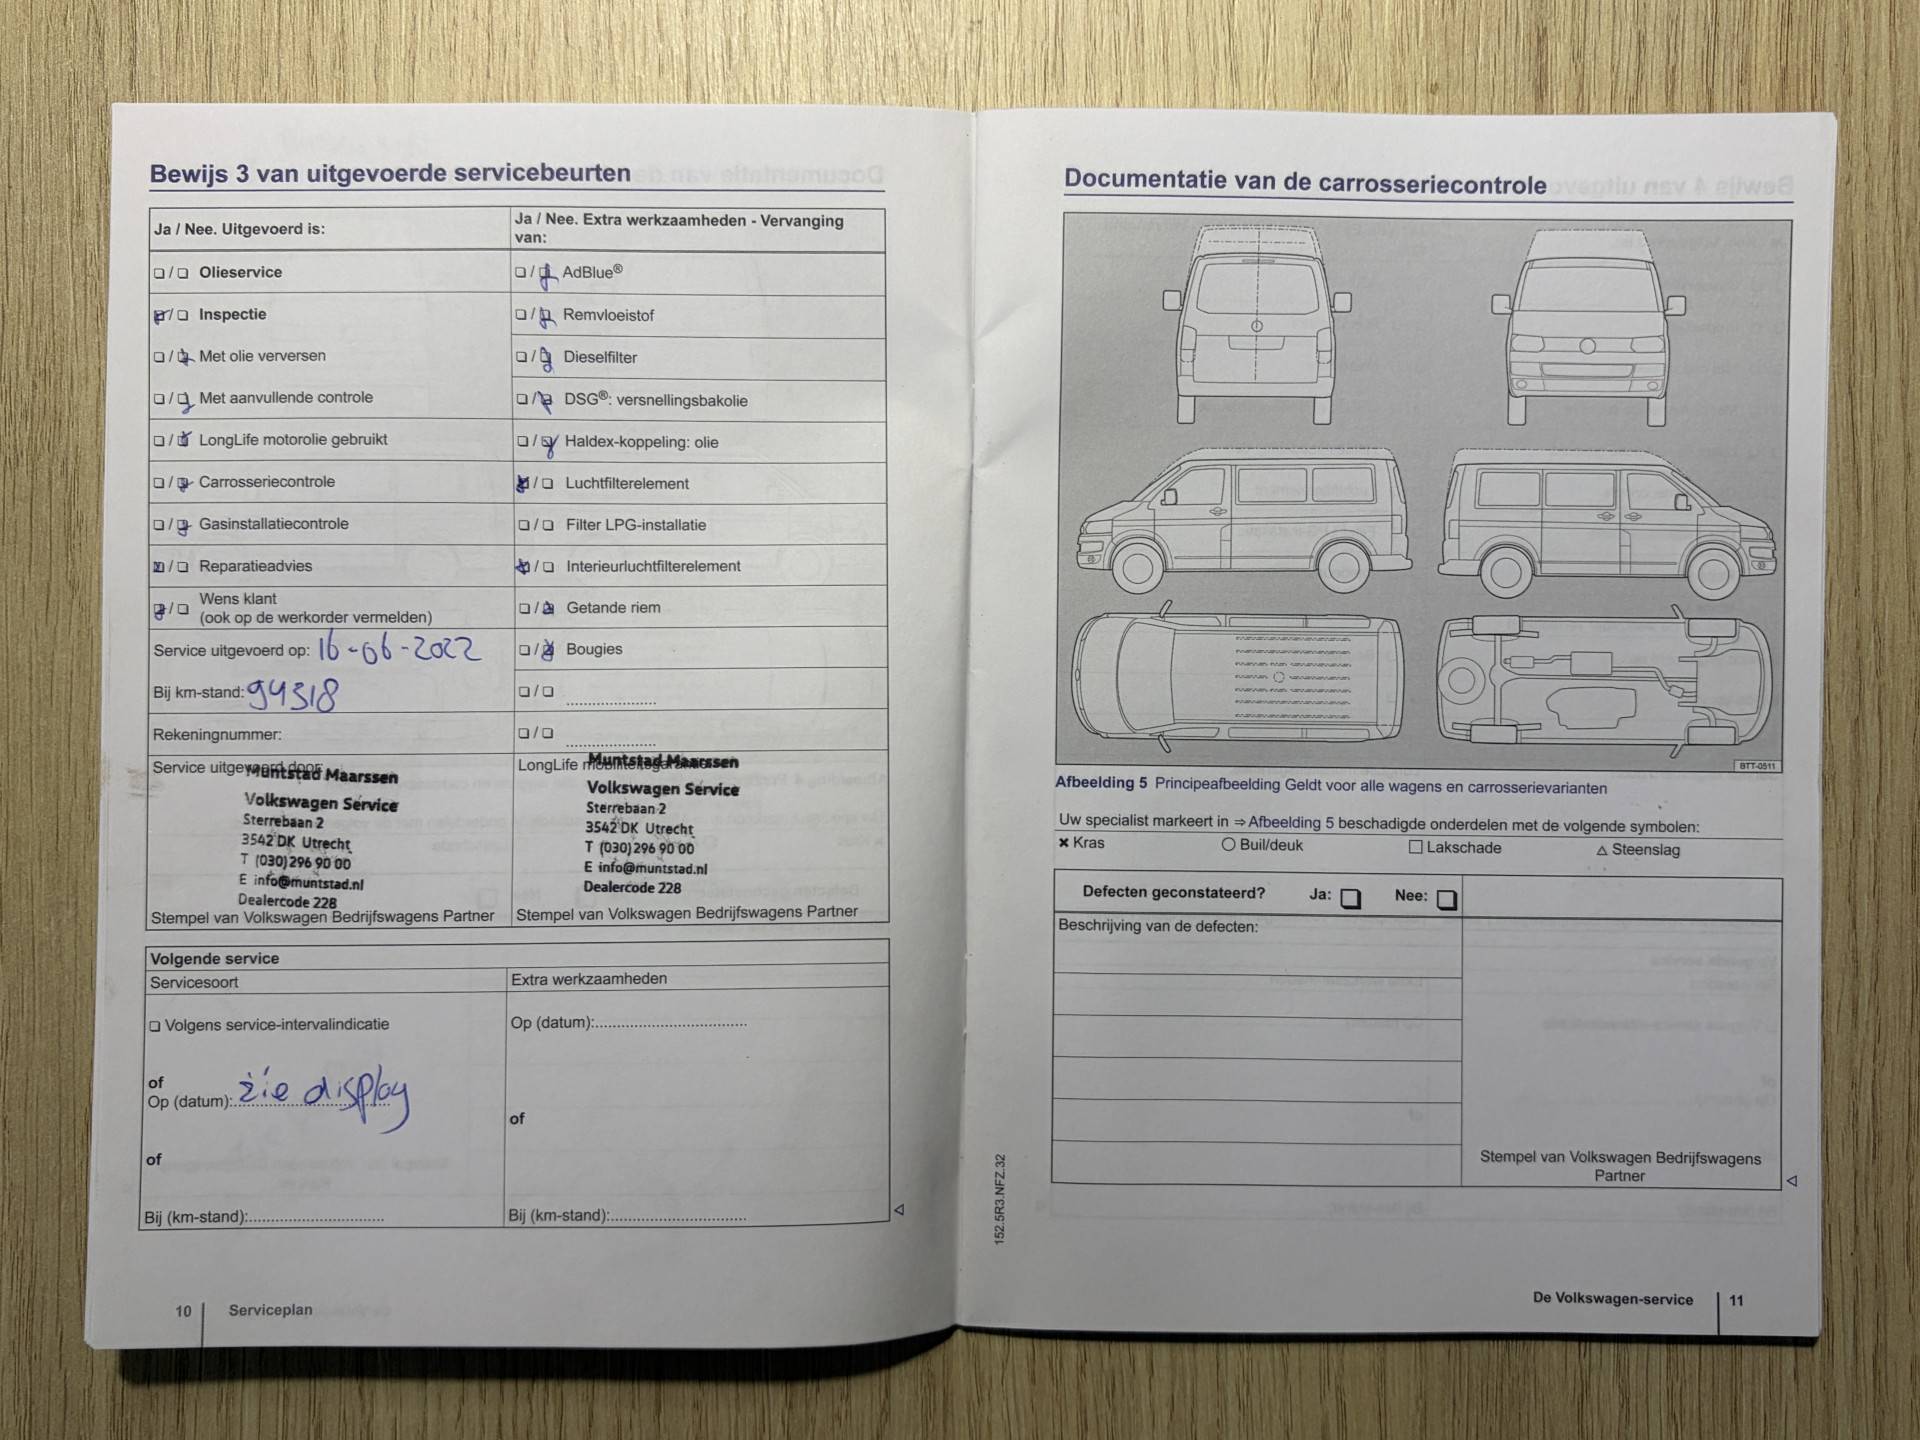 Bewijs 3 van uitgevoerde servicebeurten
Ja / Nee. Uitgevoerd is:
Ja / Nee. Extra werkzaamheden - Vervanging
van:
❑ / ❑ Olieservice
❑ / ❑ AdBlue®
❑ / ❑ Inspectie
❑ / ❑ Remvloeistof
❑ / ❑ Met olie verversen
❑ / ❑ Dieselfilter
❑ / ❑ Met aanvullende controle
❑ / ❑ DSG®: versnellingsbakolie
❑ / ❑ LongLife motorolie gebruikt
❑ / ❑ Haldex-koppeling: olie
❑ / ❑ Carrosseriecontrole
❑ / ❑ Luchtfilterelement
❑ / ❑ Gasinstallatiecontrole
❑ / ❑ Filter LPG-installatie
❑ / ❑ Reparatieadvies
❑ / ❑ Interieurluchtfilterelement
❑ / ❑ Wens klant
(ook op de werkorder vermelden)
❑ / ❑ Getande riem
Service uitgevoerd op: 16-06-2022
❑ / ❑ Bougies
Bij km-stand: 94318
❑ / ❑ ......................
Rekeningnummer:
❑ / ❑ ......................
Service uitgevoerd door:
Muntstad Maarssen
Volkswagen Service
Sterrebaan 2
3542 DK Utrecht
T (030) 296 90 00
E info@muntstad.nl
Dealercode 228
Stempel van Volkswagen Bedrijfswagens Partner
LongLife mobiliteitsgarantie
Muntstad Maarssen
Volkswagen Service
Sterrebaan 2
3542 DK Utrecht
T (030) 296 90 00
E info@muntstad.nl
Dealercode 228
Stempel van Volkswagen Bedrijfswagens Partner
Volgende service
Servicesoort
Extra werkzaamheden
❑ Volgens service-intervalindicatie
Op (datum):......................
of
Op (datum): zie display
of
of
Bij (km-stand):......................
Bij (km-stand):......................
10 Serviceplan
Documentatie van de carrosseriecontrole
BTT-0511
Afbeelding 5 Principeafbeelding Geldt voor alle wagens en carrosserievarianten
Uw specialist markeert in ⇒ Afbeelding 5 beschadigde onderdelen met de volgende symbolen:
✖ Kras ○ Buil/deuk □ Lakschade △ Steenslag
Defecten geconstateerd? Ja: ❑ Nee: ❑
Beschrijving van de defecten:
Stempel van Volkswagen Bedrijfswagens
Partner
152.5R3.NFZ.32
De Volkswagen-service 11